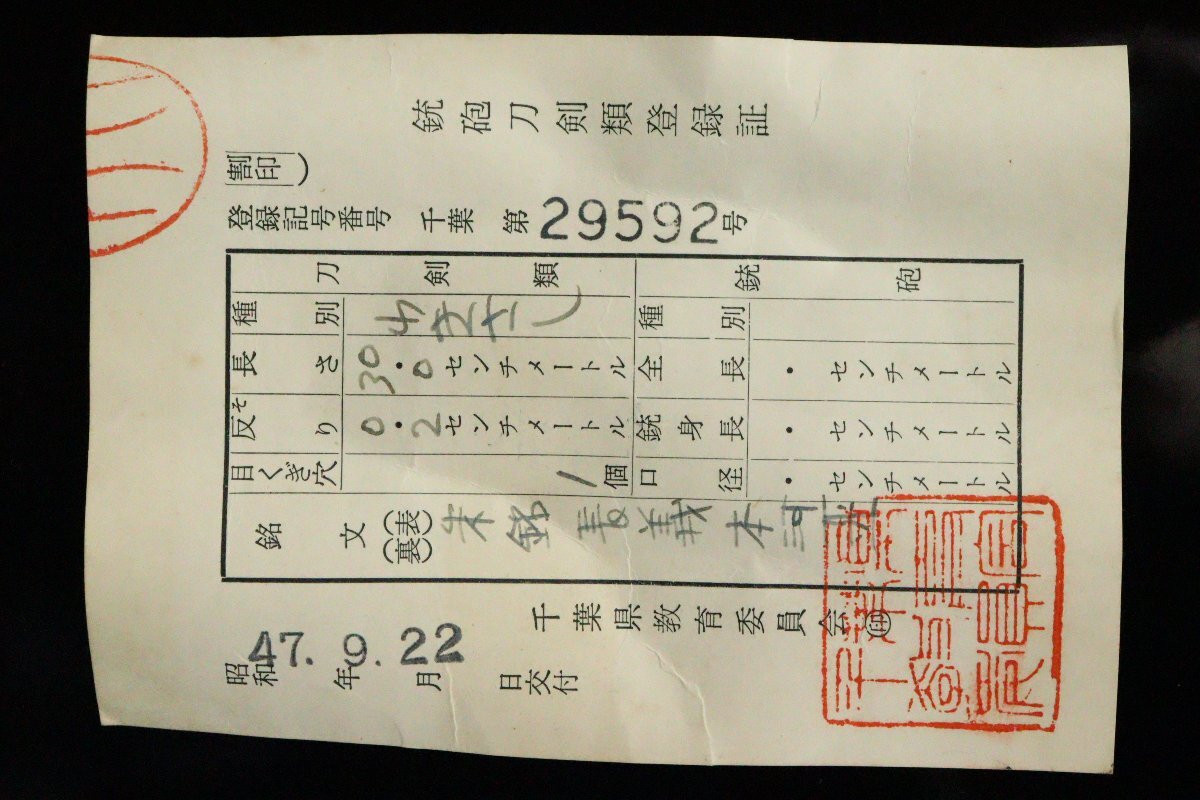 銃砲刀剣類登録証
割印
登録記号番号 千葉 第29592号
刀剣類 銃砲
種別 わきざし 種別
長さ 30.0センチメートル 全長 .センチメートル
反り そ 0.2センチメートル 銃身長 .センチメートル
目くぎ穴 1個 口径 .センチメートル
銘文 (表)(裏) 朱銘 長義 本阿
千葉県教育委員会 印
昭和47年9.月22日交付